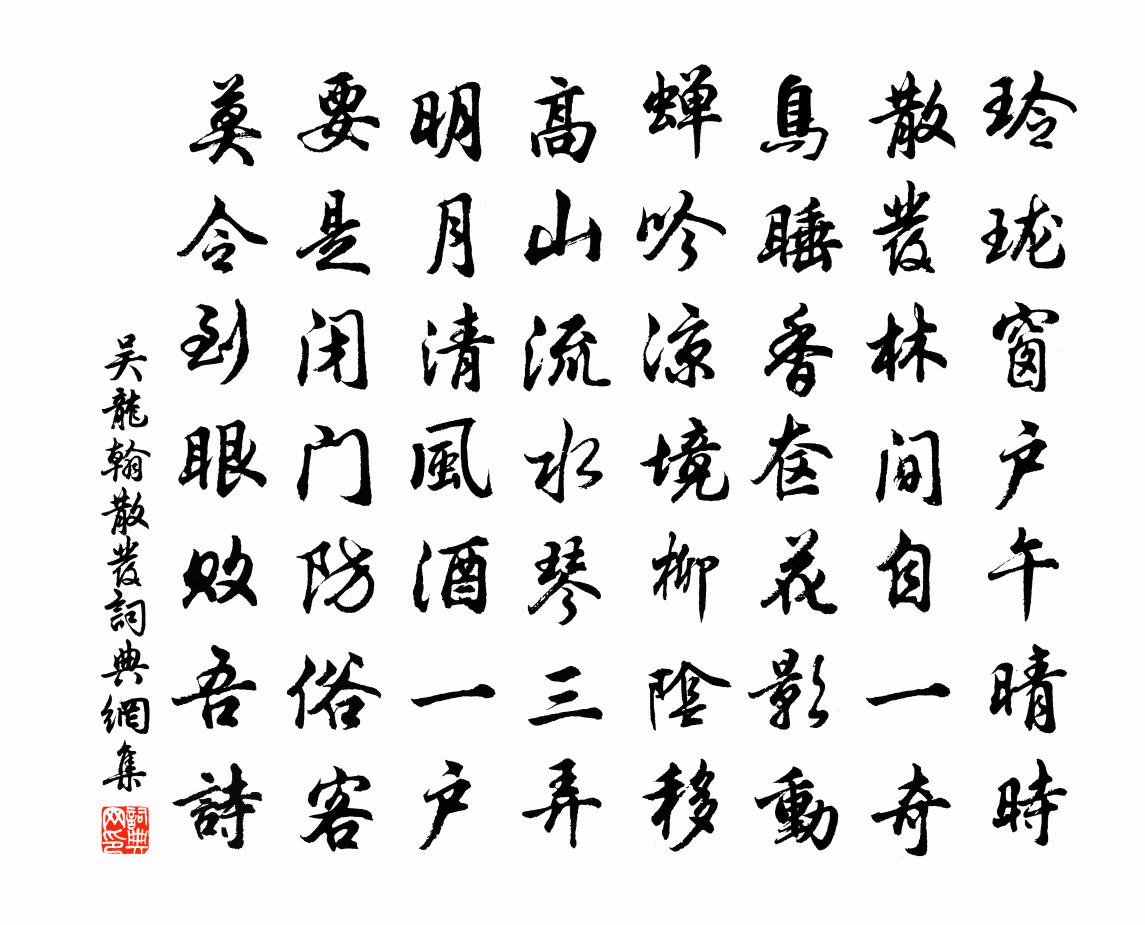 玲珑窗户午晴時
散發林間自一奇
鳥睡香奁花影動
蝉吟凉境柳陰移
高山流水琴三弄
明月清風酒一户
要是闭门防俗客
莫令到眼败吾詩
吴龍翰散發詞典網集
詞典网印